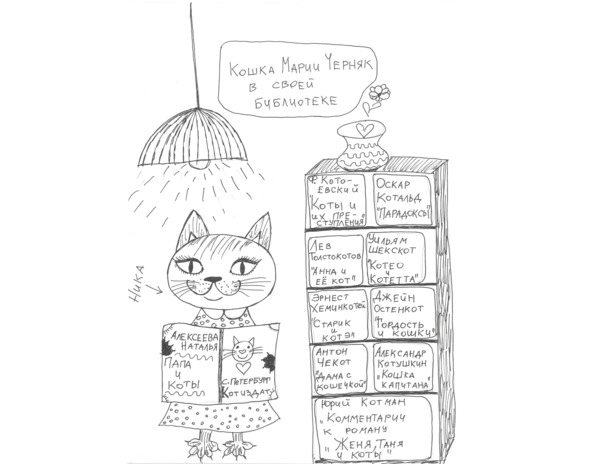 Кошка Марии Черняк
в своей
библиотеке
Ф. Кото-
евский
"Коты и
их пре-
ступления"
Оскар
Котальд
"Парадоксы"
Лев
Толстокотов
"Анна и
её кот"
Уильям
Шекскот
"Котео
и
Котетта"
Эрнест
Хеминкотей
"Старик
и
котэ"
Джейн
Остенкот
"Гордость
и кошки"
Антон
Чекот
"Дама с
кошечкой"
Александр
Котушкин
"Кошка
капитана"
Юрий Котман
"Комментарии
к роману
"Женя, Таня
и коты"
Ника
Алексеева
Наталья
Папа
и
коты
С.Петербург
Котиздат